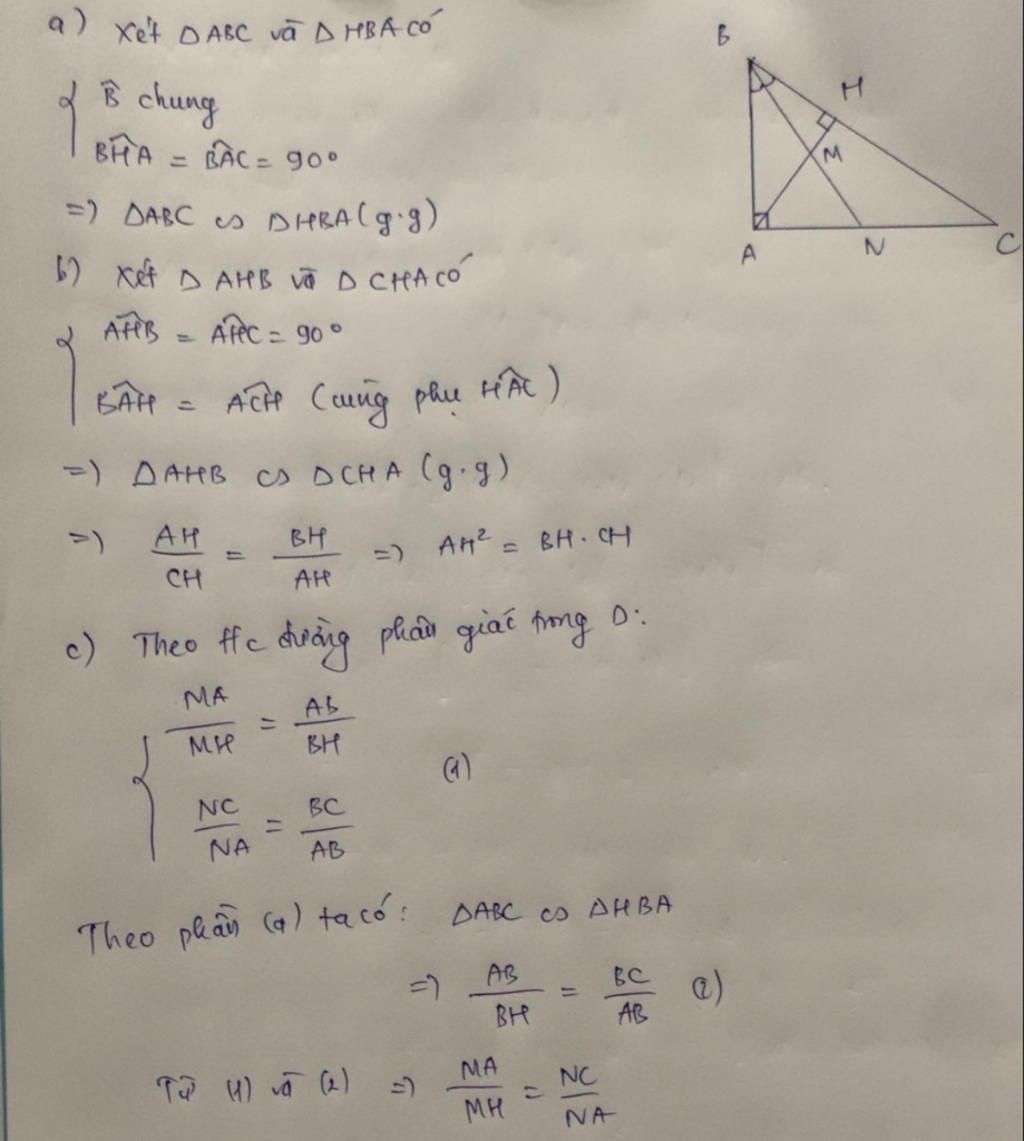 a) Xét ΔABC và ΔHBA có
{ B̂ chung
BĤA = BÂC = 90°
=) ΔABC ∽ ΔHBA (g.g)
b) Xét ΔAHB và ΔCHA có
{ AĤB = AĤC = 90°
BÂH = AĈH (cùng phụ HÂC)
=) ΔAHB ∽ ΔCHA (g.g)
=) AH/CH = BH/AH =) AH² = BH.CH
c) Theo t/c đường phân giác trong Δ:
{ MA/MH = AB/BH
(1)
NC/NA = BC/AB
Theo phần (a) ta có: ΔABC ∽ ΔHBA
=) AB/BH = BC/AB (2)
Từ (1) và (2) =) MA/MH = NC/NA
B
H
M
A
N
C